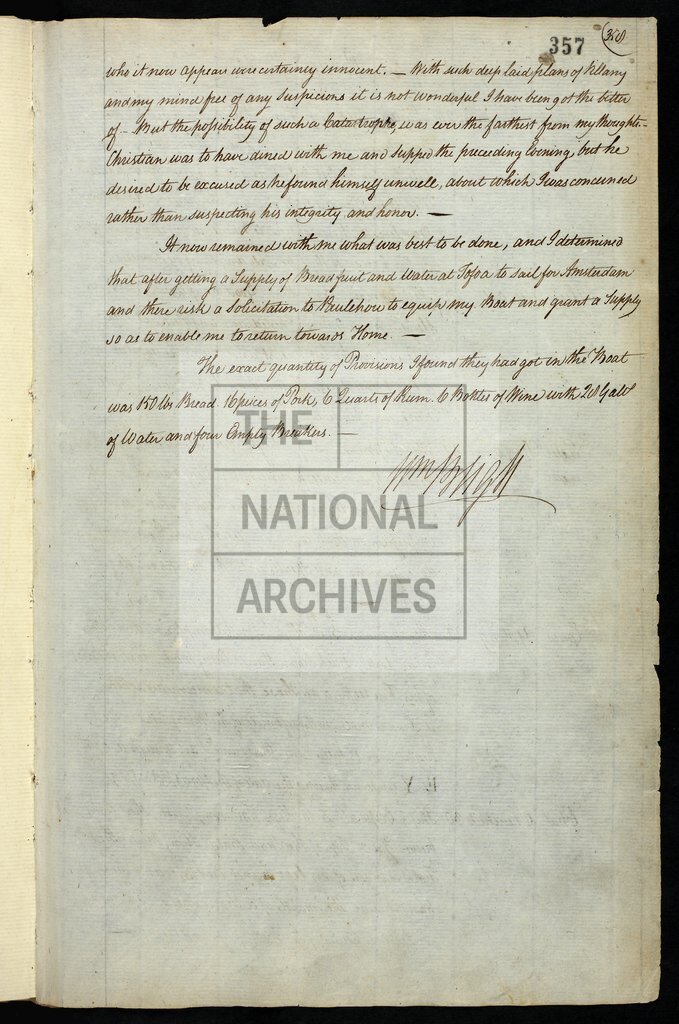 357
358
who it now appears were certainly innocent. — With such deep laid plans of Villany
and my mind free of any Suspicions it is not wonderful I have been got the better
of — But the possibility of such a Catastrophe, was ever the farthest from my thoughts. –
Christian was to have dined with me and supped the preceding Evening, but he
desired to be excused as he found himself unwell, about which I was concerned
rather than suspecting his integrity and honor. —
It now remained with me what was best to be done, and I determined
that after getting a Supply of Breadfruit and Water at Tofoa to sail for Amsterdam
and there risk a Solicitation to Poulehow to equip my Boat and grant a Supply
so as to enable me to return towards Home. —
The exact quantity of Provisions I found they had got in the Boat
was 150 lbs Bread. 16 pieces of Pork, 6 Quarts of Rum. 6 Bottles of Wine with 28 Galls
of Water and four Empty Breakers. —
Wm Bligh
THE
NATIONAL
ARCHIVES